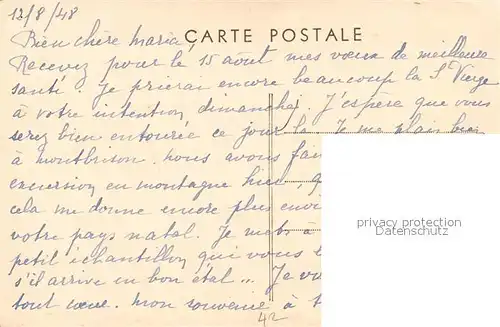 12/8/48
CARTE POSTALE
Bien chère Maria,
Recevez pour le 15 août mes vœux de meilleure
santé. Je prierai encore beaucoup la Ste Vierge
à votre intention, dimanche. J'espère que vous
serez bien entourée ce jour là. Je me plais bien
à Montbrison. Nous avons fai
excursion en montagne hier,
cela me donne encore plus envi
votre pays natal. Je mets à
petit échantillon qui vous
s'il arrive en bon état... Je
tout cœur. Mon souvenir à
42
privacy protection
Datenschutz